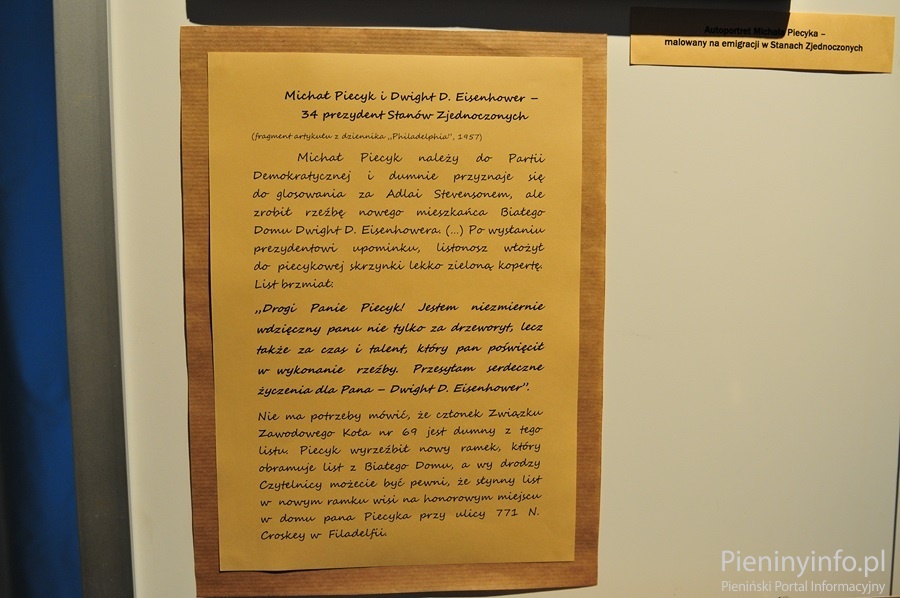 Autoportret Michała Piecyka –
malowany na emigracji w Stanach Zjednoczonych
Michał Piecyk i Dwight D. Eisenhower –
34 prezydent Stanów Zjednoczonych
(fragment artykułu z dziennika „Philadelphia", 1957)
Michał Piecyk należy do Partii
Demokratycznej i dumnie przyznaje się
do głosowania za Adlai Stevensonem, ale
zrobił rzeźbę nowego mieszkańca Białego
Domu Dwight D. Eisenhowera. (...) Po wysłaniu
prezydentowi upominku, listonosz włożył
do piecykowej skrzynki lekko zieloną kopertę.
List brzmiał:
„Drogi Panie Piecyk! Jestem niezmiernie
wdzięczny panu nie tylko za drzeworyt, lecz
także za czas i talent, który pan poświęcił
w wykonanie rzeźby. Przesyłam serdeczne
życzenia dla Pana – Dwight D. Eisenhower".
Nie ma potrzeby mówić, że członek Związku
Zawodowego Koła nr 69 jest dumny z tego
listu. Piecyk wyrzeźbił nowy ramek, który
obramuje list z Białego Domu, a wy drodzy
Czytelnicy możecie być pewni, że słynny list
w nowym ramku wisi na honorowym miejscu
w domu pana Piecyka przy ulicy 771 N.
Croskey w Filadelfii.
Pieninyinfo.pl
Pieniński Portal Informacyjny